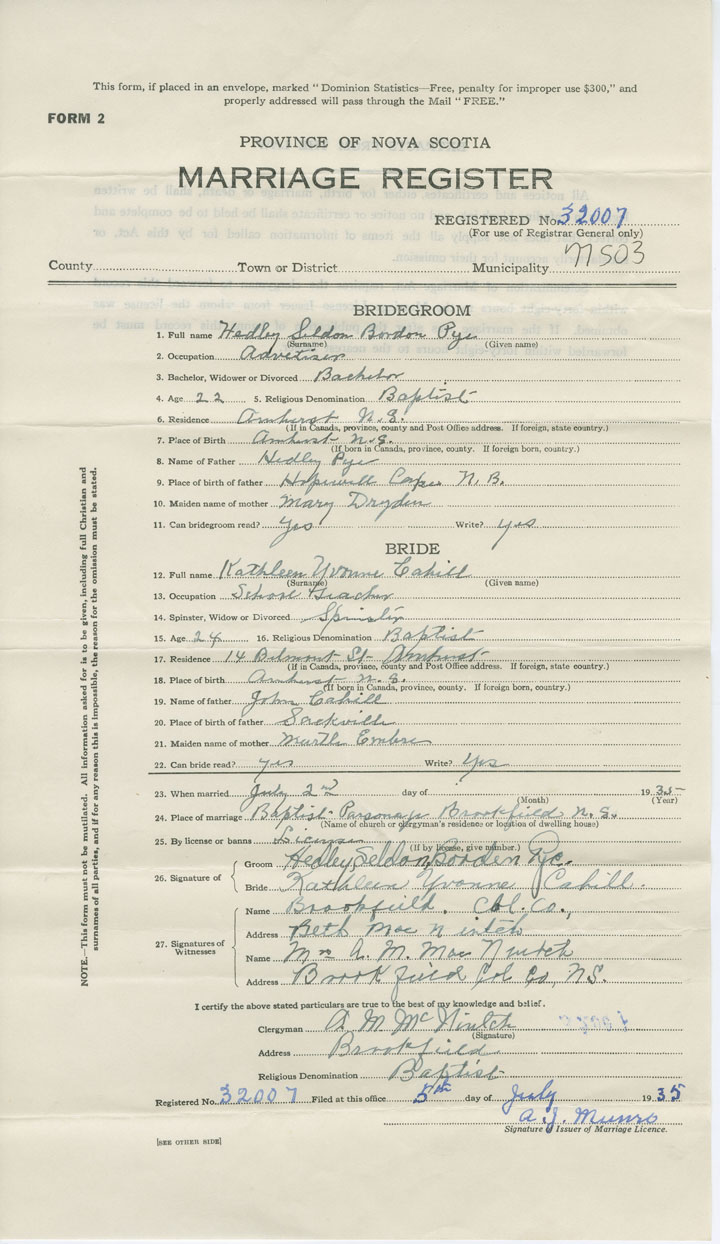 This form, if placed in an envelope, marked "Dominion Statistics—Free, penalty for improper use $300," and
properly addressed will pass through the Mail "FREE."
FORM 2
PROVINCE OF NOVA SCOTIA
MARRIAGE REGISTER
REGISTERED No. 32007
(For use of Registrar General only)
County Town or District Municipality
BRIDEGROOM
1. Full name Hedley Seldon Bordon Pye
(Surname) (Given name)
2. Occupation Advetiser
3. Bachelor, Widower or Divorced Bachelor
4. Age 22 5. Religious Denomination Baptist
6. Residence Amherst N.S.
(If in Canada, province, county and Post Office address. If foreign, state country.)
7. Place of Birth Amherst N.S.
(If born in Canada, province, county. If foreign born, country.)
8. Name of Father Hedley Pye
9. Place of birth of father Hopewell Cape N.B.
10. Maiden name of mother Mary Dryden
11. Can bridegroom read? Yes Write? Yes
BRIDE
12. Full name Kathleen Yvonne Cahill
(Surname) (Given name)
13. Occupation School Teacher
14. Spinster, Widow or Divorced Spinster
15. Age 24 16. Religious Denomination Baptist
17. Residence 14 Belmont St. Amherst
(If in Canada, province, county and Post Office address. If foreign, state country.)
18. Place of birth Amherst N.S.
(If born in Canada, province, county. If foreign born, country.)
19. Name of father John Cahill
20. Place of birth of father Sackville
21. Maiden name of mother Myrtle
22. Can bride read? yes Write? Yes
23. When married July 2nd day of 1935
(Month) (Year)
24. Place of marriage Baptist Parsonage Brookfield N.S.
(Name of church or clergyman's residence or location of dwelling house)
25. By license or banns License
(If by license, give number.)
26. Signature of Groom Hedley Seldon Borden Pye.
Bride Kathleen Yvonne Cahill.
27. Signatures of Witnesses
Name Brookfield, Col. Co.,
Address Beth Mac Nintch
Name Mrs A. M. Mac Nintch
Address Brookfield Col. Co, N.S.
I certify the above stated particulars are true to the best of my knowledge and belief.
Clergyman A M McNintch
(Signature)
Address Brookfield
Religious Denomination Baptist
Registered No. 32007 Filed at this office 5th day of July 1935
A. J. Munro
Signature of Issuer of Marriage Licence.
[SEE OTHER SIDE]
NOTE.—This form must not be mutilated. All information asked for is to be given, including full Christian and
surnames of all parties, and if for any reason this is impossible, the reason for the omission must be stated.